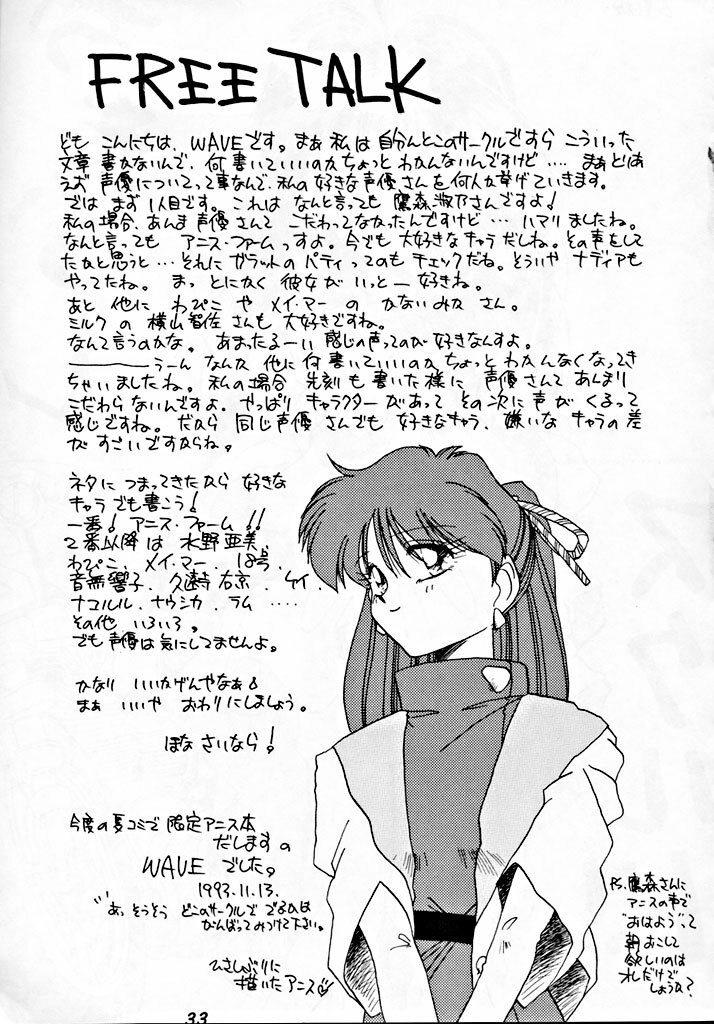 FREE TALK
ども こんにちは、WAVEです。まぁ私は自分んとこのサークルですら こういった
文章書かないんで、何書いていいのかちょっと わかんないんですけど‥‥ まぁとりあ
えず 声優についてって事なんで、私の好きな声優さんを何人か挙げていきます。
では まず1人目です。これは なんと言っても 鷹森淑乃さんですよ!
私の場合、あんま声優さんて こだわってなかったんですけど… ハマりましたね。
なんと言っても アニス・ファームっすよ。今でも大好きなキャラだしね。その声をして
たかと思うと…それに ガラットの パティってのも チェックだね。そういや ナディアも
やってたね。 まっ とにかく 彼女が いっとー好きね。
あと 他に わぴこ や メイ・マー の かないみか さん。
ミルク の 横山智佐 さんも 大好きですね。
なんて言うのかな。あまったるーい 感じの声ってのが好きなんすよ。
――――うーん なんか 他に何書いていいのか ちょっと わかんなくなってき
ちゃいましたね。私の場合 先刻も書いた様に 声優さんて あんまり
こだわらないんですよ。やっぱり キャラクターがあって その次に声が くるって
感じですね。だから 同じ声優さんでも 好きなキャラ、嫌いな キャラの差
が すごいですからね。
ネタに つまってきたから 好きな
キャラでも書こう!
一番! アニス・ファーム!!
2番以降は 水野亜美、
わぴこ、メイ・マー、18号、
音無響子、久遠寺右京、ケイ、
ナコルル、ナウシカ、ラム ‥‥
その他 いろいろ。
でも声優は気にしてませんよ。
かなり いいかげんやなぁ
まぁ いいや おわりにしましょう。
ほな さいなら!
今度の夏コミで 限定アニス本
だしますの
WAVE でした。
1993.11.13.
"あ、そうそう どこのサークルで でるかは
がんばってみつけて下さい。
ひさしぶりに
描いたアニス♡
PS.鷹森さんに
アニスの声で
"おはよう"って
朝おこして
欲しいのは
オレだけで
しょうか?
33